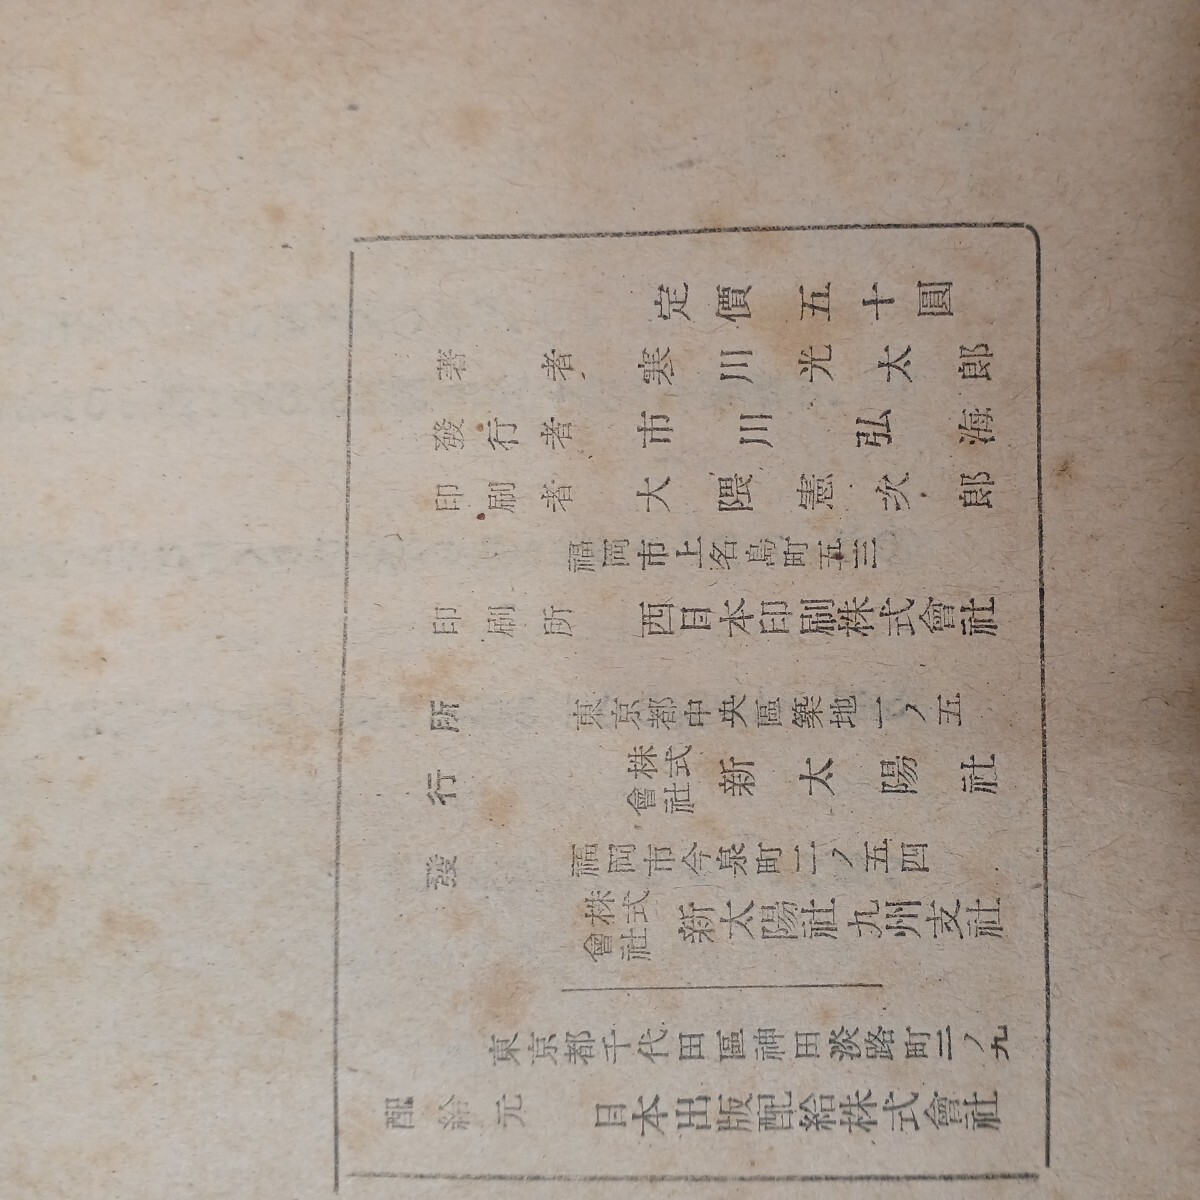 定價五十圓
著者 寒川光太郎
發行者 市川弘海
印刷者 大隈憲次郎
福岡市上名島町五三
印刷所 西日本印刷株式會社
發行所
東京都中央區築地一ノ五
株式會社 新太陽社
福岡市今泉町二ノ五四
株式會社 新太陽社九州支社
東京都千代田區神田淡路町二ノ九
配給元 日本出版配給株式會社